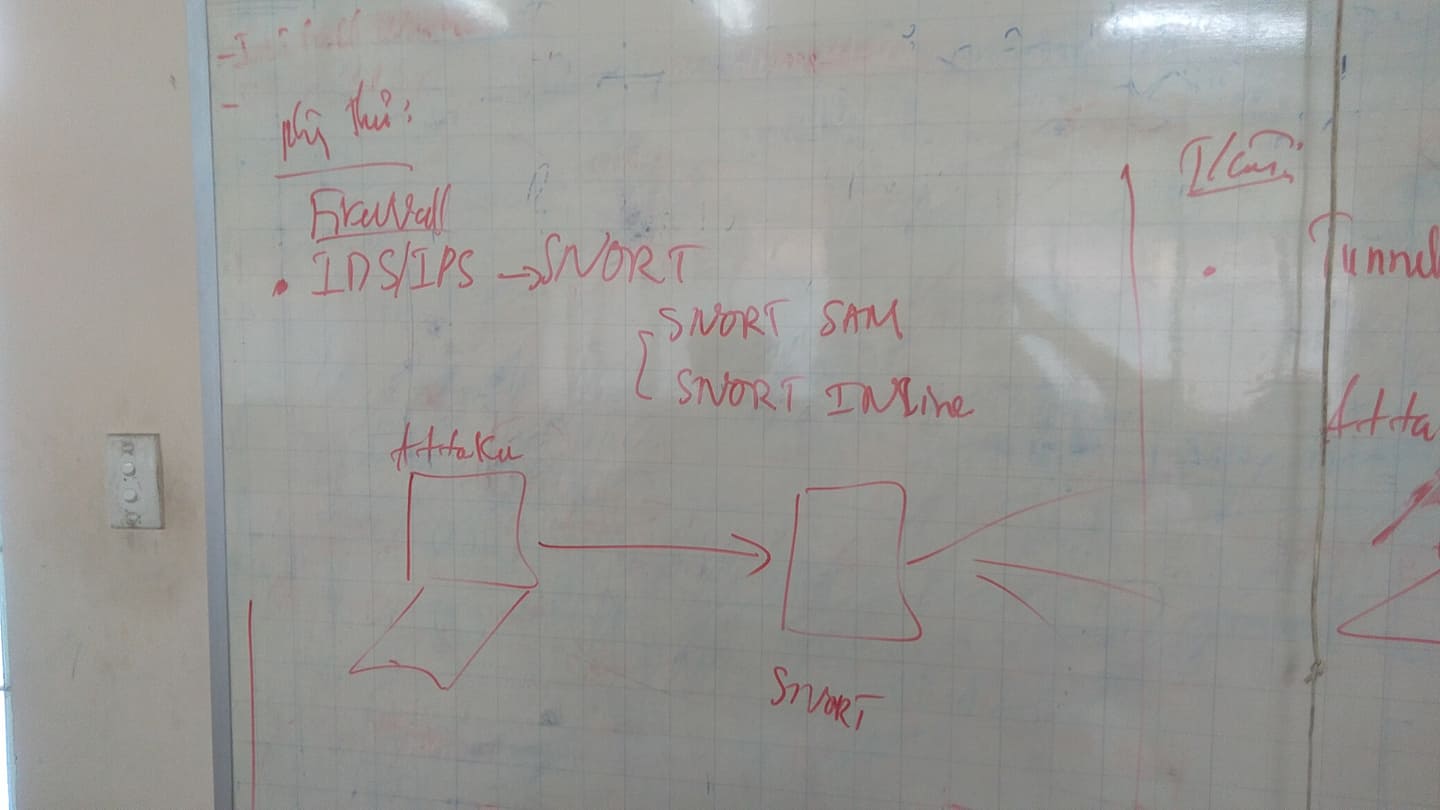 phòng thủ:
Firewall
• IDS/IPS → SNORT
SNORT SAM
SNORT INline
Attaker
SNORT
T/Công
• Tunnel
Atta